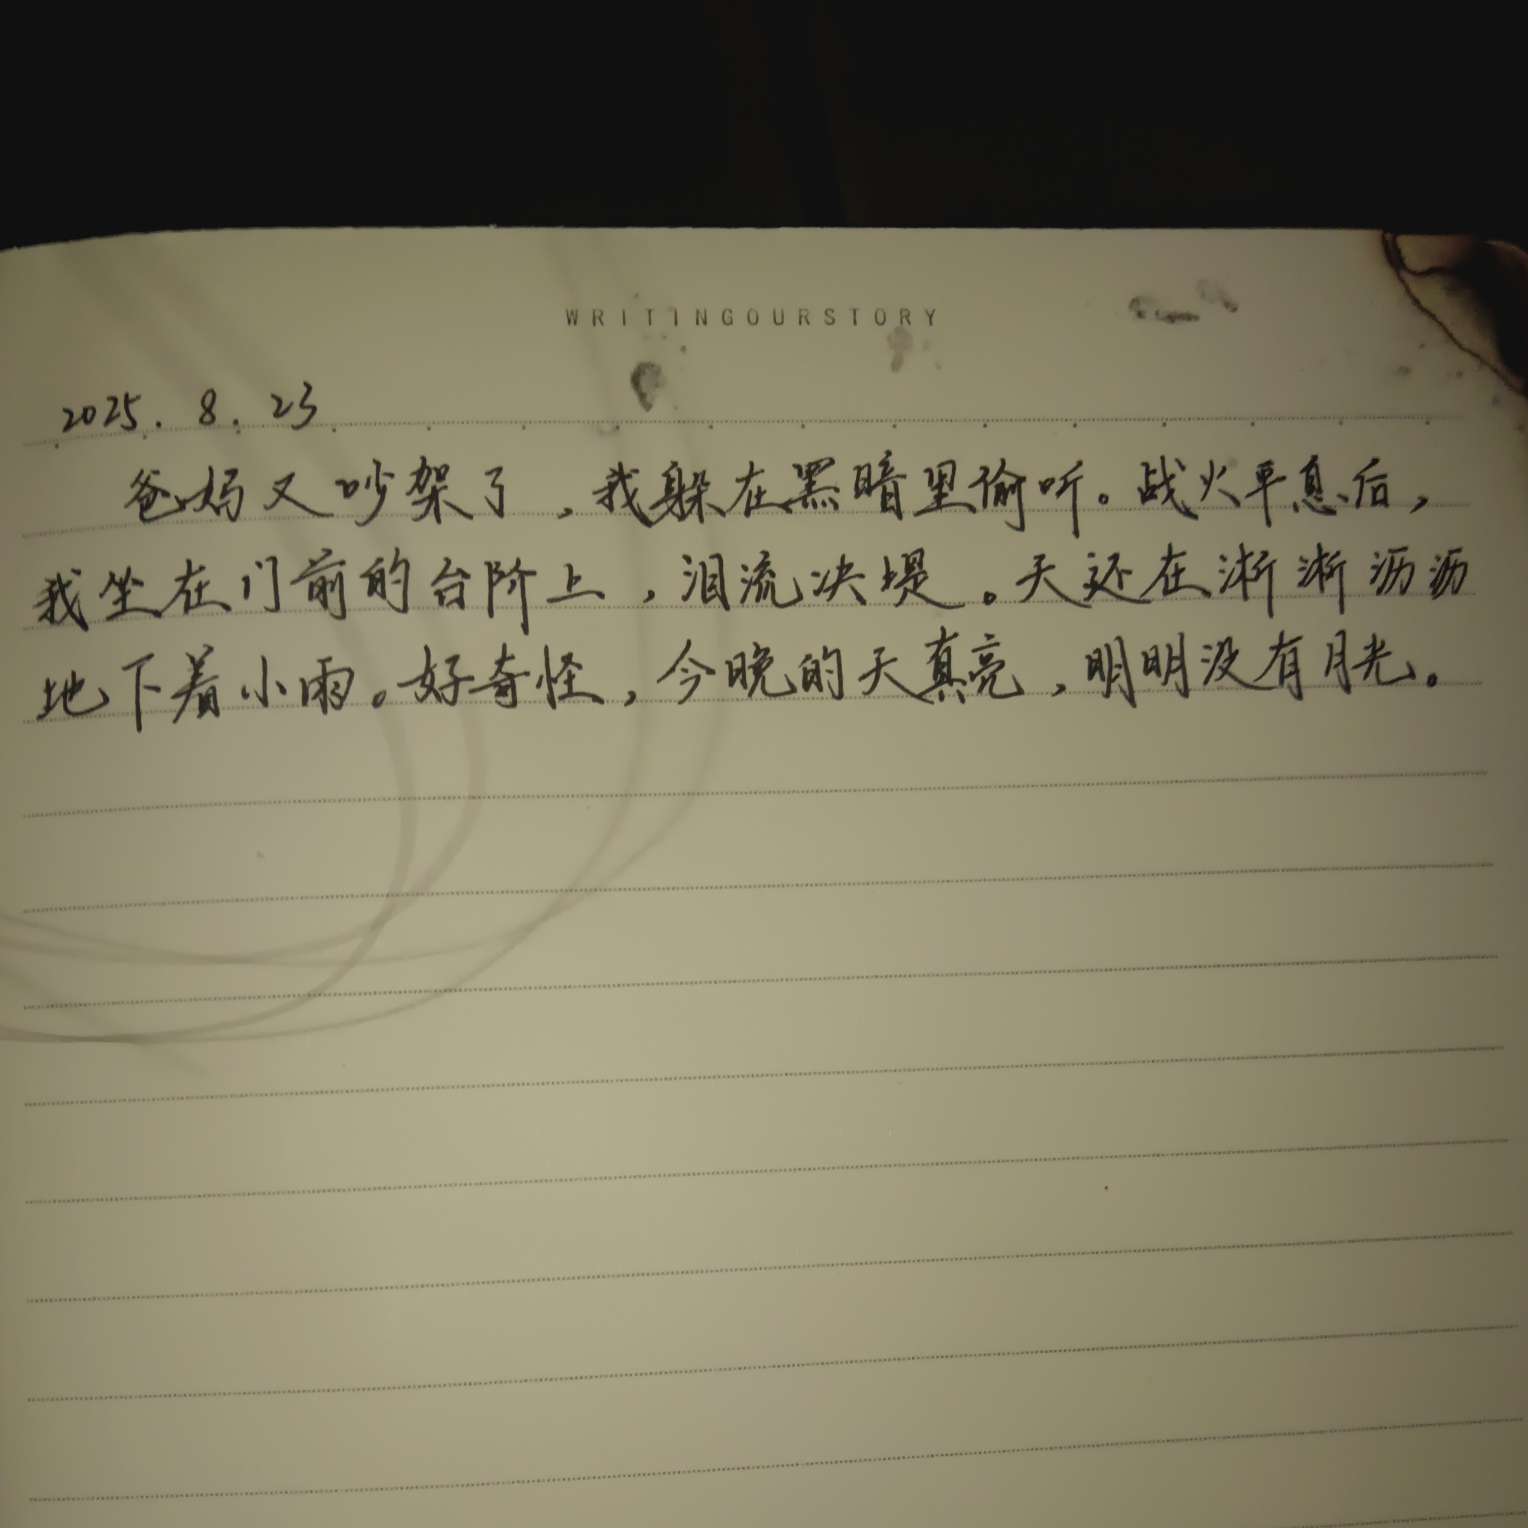 WRITINGOURSTORY
2025.8.23
爸妈又吵架了，我躲在黑暗里偷听。战火平息后，
我坐在门前的台阶上，泪流决堤。天还在淅淅沥沥
地下着小雨。好奇怪，今晚的天真亮，明明没有月光。